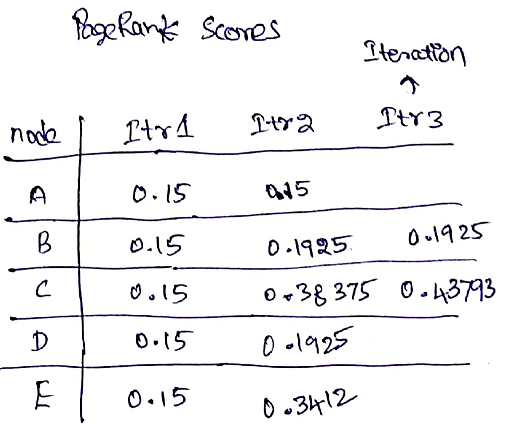 PageRank Scores
Iteration
↑
node Itr1 Itr2 Itr3
A 0.15 0.15
B 0.15 0.1925 0.1925
C 0.15 0.38375 0.43793
D 0.15 0.1925
E 0.15 0.3412